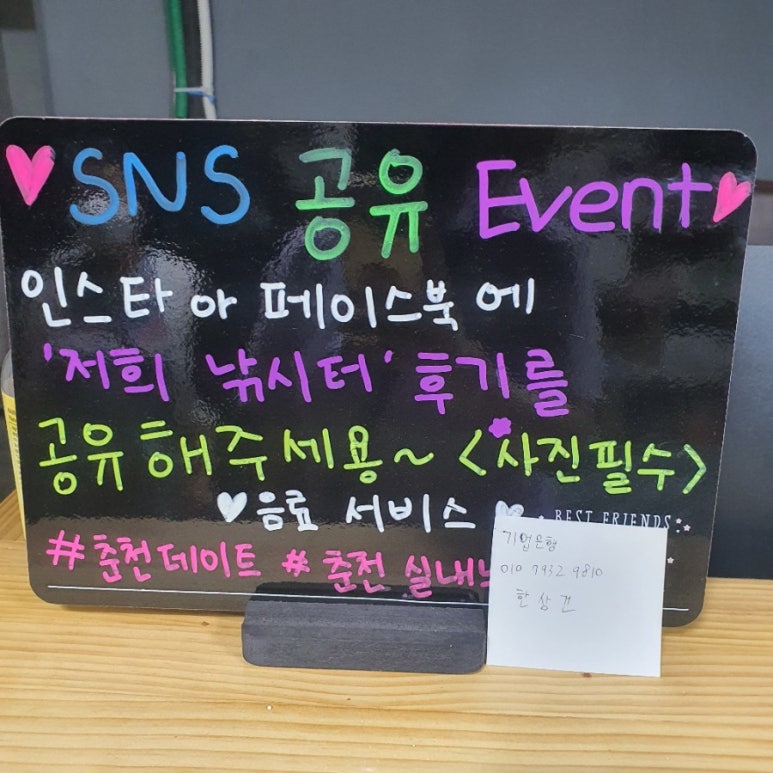 SNS 공유 Event
인스타 아 페이스북에
'저희 낚시터' 후기를
공유해주세용~ <사진필수>
음료 서비스
BEST FRIENDS
#춘천데이트 #춘천 실내
기업은행
010 7932 9810
한상건